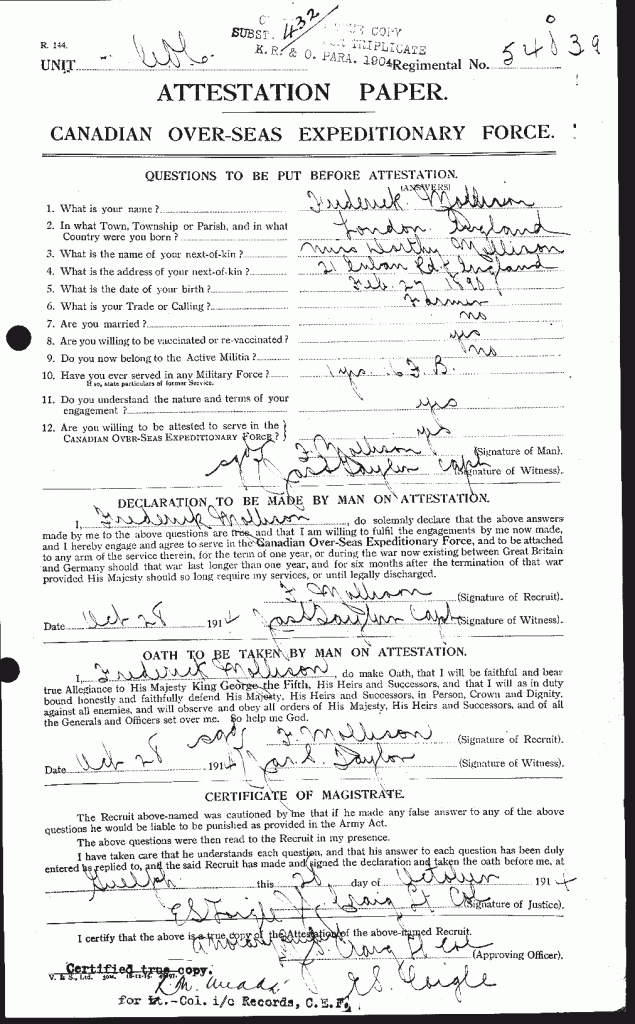 SUBST. 432 COPY
TRIPLICATE
K.R. & O. PARA. 1904
R. 144.
UNIT
Regimental No. 54039
ATTESTATION PAPER.
CANADIAN OVER-SEAS EXPEDITIONARY FORCE.
QUESTIONS TO BE PUT BEFORE ATTESTATION.
(ANSWERS)
1. What is your name? Frederick Mollison
2. In what Town, Township or Parish, and in what Country were you born? London England
3. What is the name of your next-of-kin? Mrs Mollison
4. What is the address of your next-of-kin? 21 Rd England
5. What is the date of your birth? Feb. 27 1890
6. What is your Trade or Calling? Farmer
7. Are you married? no
8. Are you willing to be vaccinated or re-vaccinated? yes
9. Do you now belong to the Active Militia? no
10. Have you ever served in any Military Force? 1 yrs. F. B.
If so, state particulars of former Service.
11. Do you understand the nature and terms of your engagement? yes
12. Are you willing to be attested to serve in the CANADIAN OVER-SEAS EXPEDITIONARY FORCE? yes
sgd F Mollison (Signature of Man).
Jas S Taylor Capt (Signature of Witness).
DECLARATION TO BE MADE BY MAN ON ATTESTATION.
I, Frederick Mollison, do solemnly declare that the above answers
made by me to the above questions are true, and that I am willing to fulfil the engagements by me now made,
and I hereby engage and agree to serve in the Canadian Over-Seas Expeditionary Force, and to be attached
to any arm of the service therein, for the term of one year, or during the war now existing between Great Britain
and Germany should that war last longer than one year, and for six months after the termination of that war
provided His Majesty should so long require my services, or until legally discharged.
F Mollison (Signature of Recruit).
Date Oct 28 1914 Jas S Taylor Capt (Signature of Witness).
OATH TO BE TAKEN BY MAN ON ATTESTATION.
I, Frederick Mollison, do make Oath, that I will be faithful and bear
true Allegiance to His Majesty King George the Fifth, His Heirs and Successors, and that I will as in duty
bound honestly and faithfully defend His Majesty, His Heirs and Successors, in Person, Crown and Dignity,
against all enemies, and will observe and obey all orders of His Majesty, His Heirs and Successors, and of all
the Generals and Officers set over me. So help me God.
sgd F Mollison (Signature of Recruit).
Date Oct 28 1914 Jas. S. Taylor (Signature of Witness).
CERTIFICATE OF MAGISTRATE.
The Recruit above-named was cautioned by me that if he made any false answer to any of the above
questions he would be liable to be punished as provided in the Army Act.
The above questions were then read to the Recruit in my presence.
I have taken care that he understands each question, and that his answer to each question has been duly
entered as replied to, and the said Recruit has made and signed the declaration and taken the oath before me, at
Guelph this 28 day of October 1914
Craig Lt Col (Signature of Justice).
I certify that the above is a true copy of the Attestation of the above-named Recruit.
Craig Lt Col (Approving Officer).
Certified true copy.
V. & S., Ltd.
for Lt.-Col. i/c Records, C.E.F.